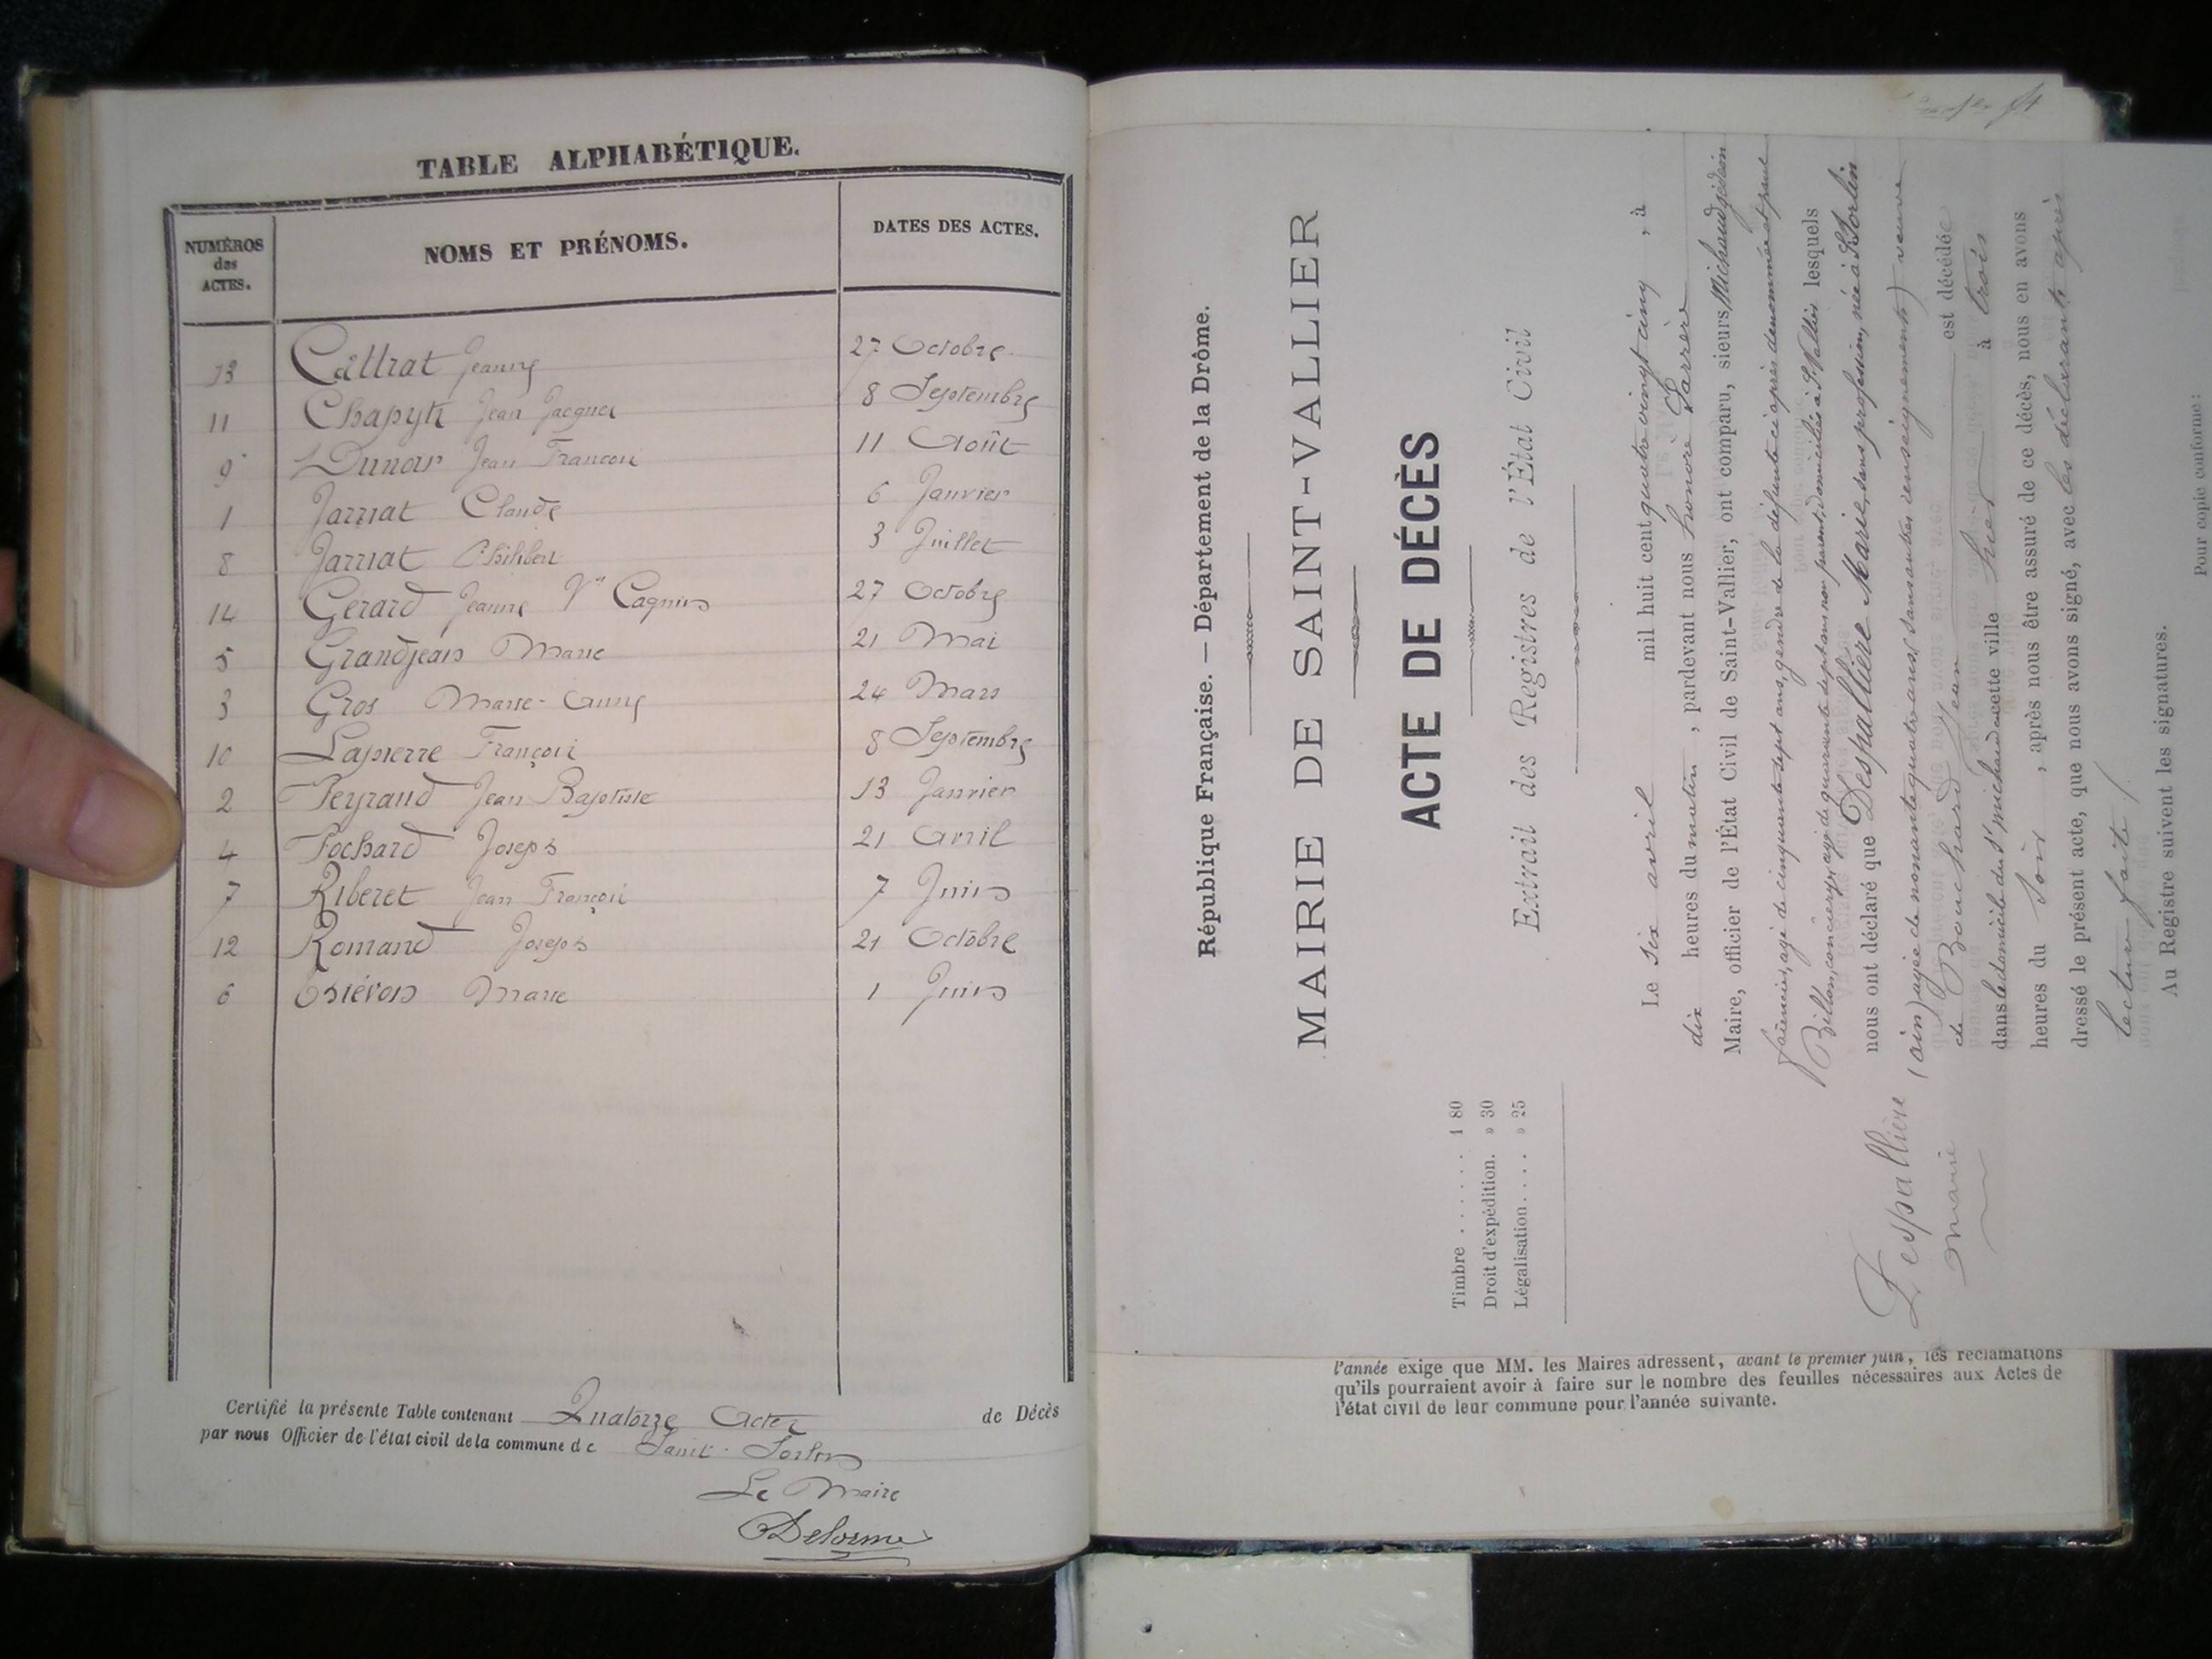 TABLE ALPHABÉTIQUE.
NUMÉROS
des
ACTES.
NOMS ET PRÉNOMS.
DATES DES ACTES.
13 Cattrat Jeanne 27 Octobre
11 Jean Jacques 8 Septembre
9 Jean François 11 Août
1 Jarriat Claude 6 Janvier
8 Jarriat Philibert 3 Juillet
14 Gerard Jeanne Vve 27 Octobre
5 Grandjean Marie 21 Mai
3 Gros Marie-Anne 24 Mars
10 Lapierre François 8 Septembre
2 Peyraud Jean Baptiste 13 Janvier
4 Pochard Joseph 21 Avril
7 Riberet Jean François 7 Juin
12 Romand Joseph 21 Octobre
6 Thiévon Marie 1 Juin
Certifié la présente Table contenant Quatorze Actes de Décès
par nous Officier de l'état civil de la commune de Saint-Sorlin
Le Maire
Delorme
République Française. — Département de la Drôme.
MAIRIE DE SAINT-VALLIER
ACTE DE DÉCÈS
Extrait des Registres de l'État Civil
Timbre . . . . . . 1 80
Droit d'expédition. » 30
Légalisation . . . . » 25
Le six avril mil huit cent quatre vingt cinq , à
dix heures du matin , pardevant nous honoré Larrère
Maire, officier de l'État Civil de Saint-Vallier, ont comparu, sieurs Michaud gédéon
faïencier, agé de cinquante sept ans, gendre de la défunte ci après dénommée et paul
Billon, concierge, agé de quarante sept ans non parent, domiciliés à St Vallier lesquels
nous ont déclaré que Despallière Marie, sans profession, née à St Sorlin
(ain) agée de nonante quatre ans (sans autres renseignements) veuve
de Bouchard Jean est décédée
dans le domicile du Sr michaud en cette ville hier à trois
heures du soir , après nous être assuré de ce décès, nous en avons
dressé le présent acte, que nous avons signé, avec les déclarants après
lecture faite.
Au Registre suivent les signatures.
Pour copie conforme:
Despallière
marie
l'année exige que MM. les Maires adressent, avant le premier juin, les réclamations
qu'ils pourraient avoir à faire sur le nombre des feuilles nécessaires aux Actes de
l'état civil de leur commune pour l'année suivante.